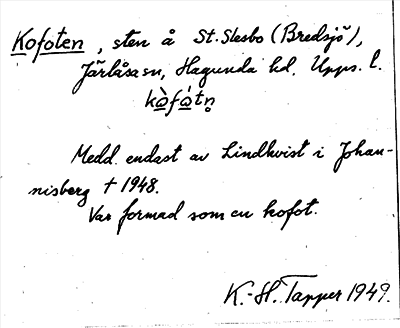 Kofoten, sten å St. Slesbo (Bredsjö),
Järlåsa sn, Hagunda hd. Upps. l.
kòfátn̥
Medd. endast av Lindkvist i Johan-
nisberg † 1948.
Var formad som en kofot.
K.-H. Tapper 1949.